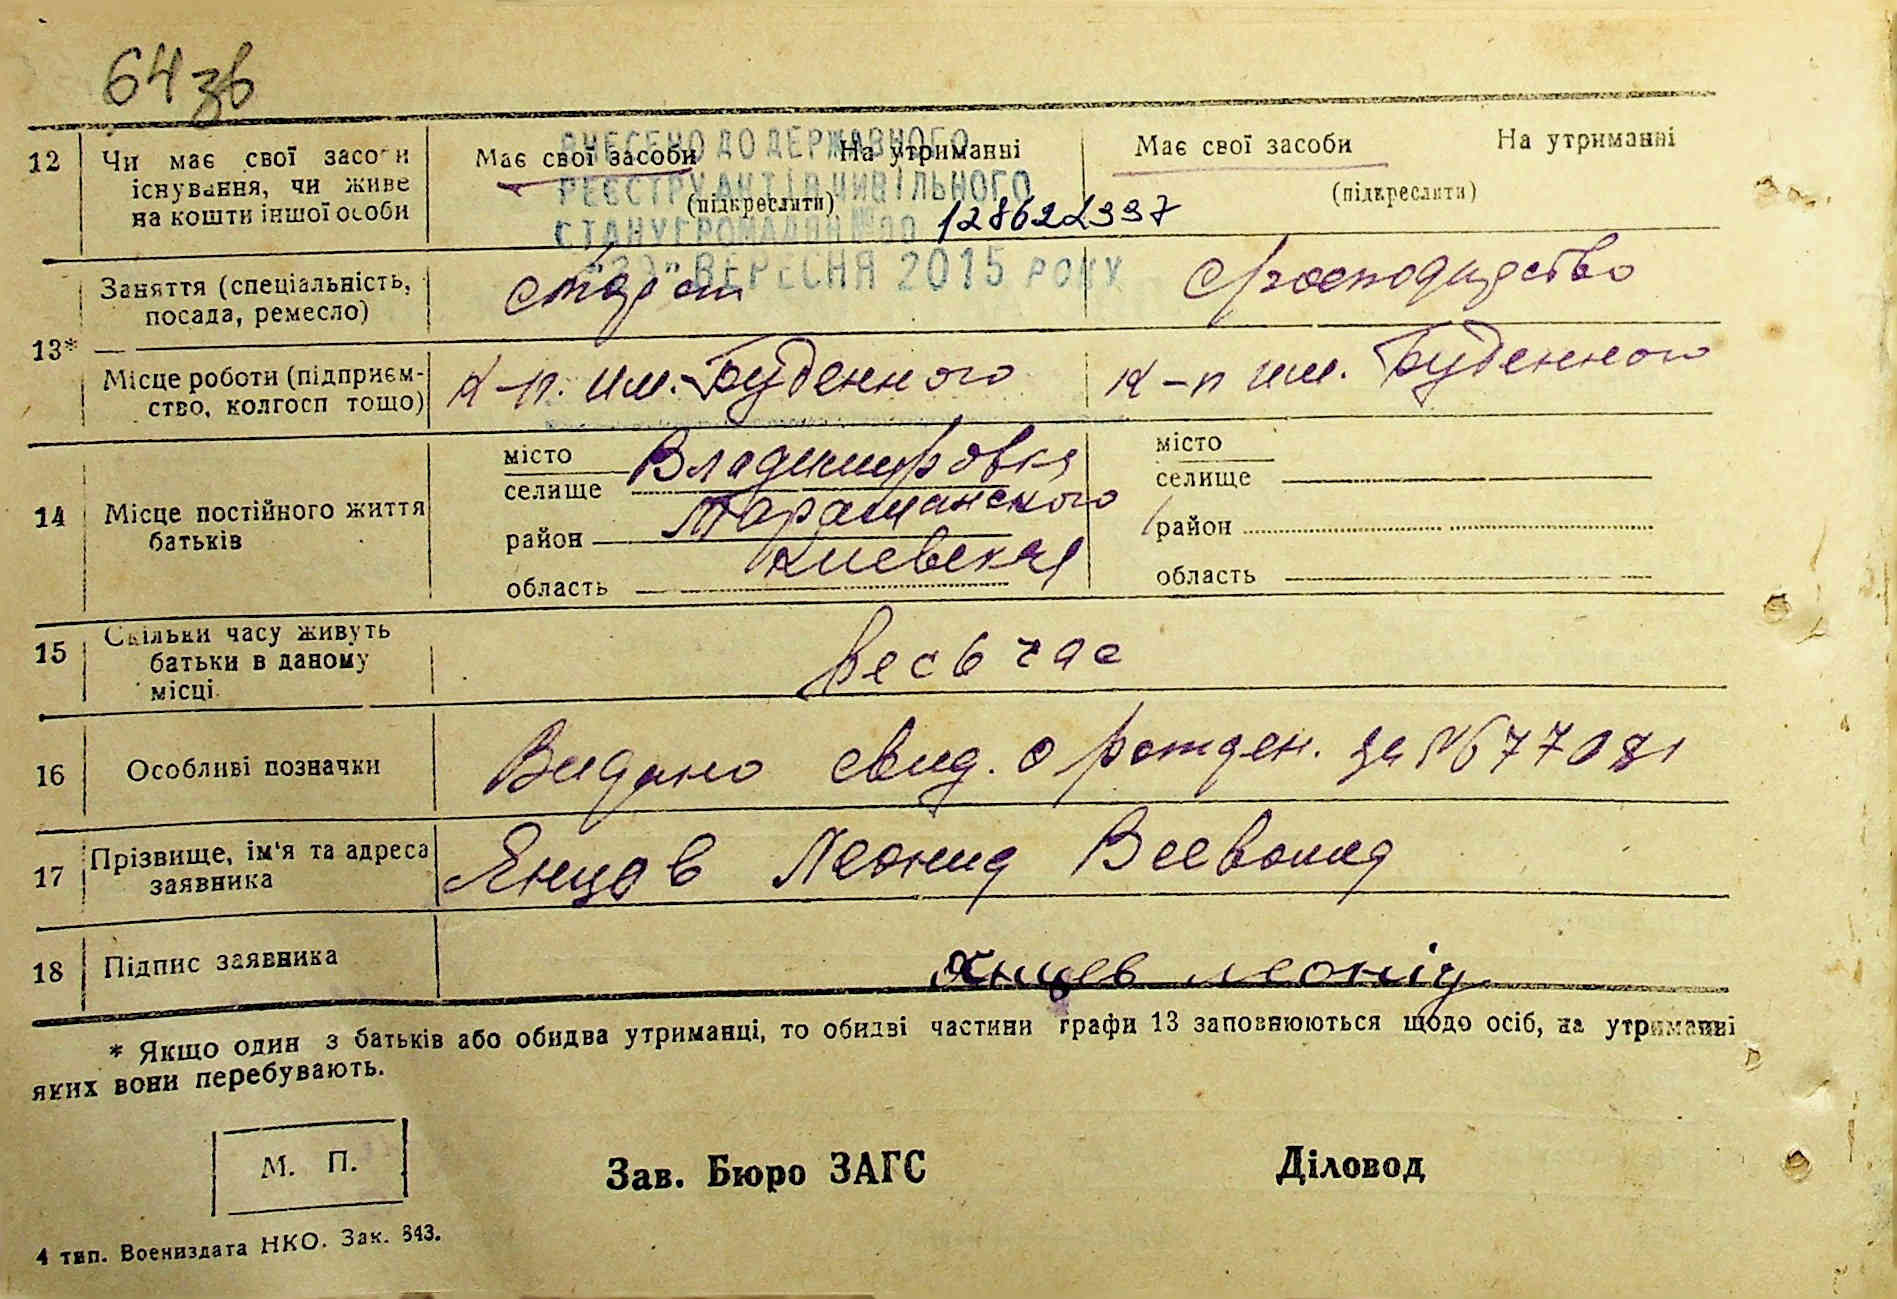 64 зв
12 Чи має свої засоби існування, чи живе на кошти іншої особи
Має свої засоби На утриманні
(підкреслити)
Має свої засоби На утриманні
(підкреслити)
ВНЕСЕНО ДО ДЕРЖАВНОГО
РЕЄСТРУ АКТІВ ЦИВІЛЬНОГО
СТАНУ ГРОМАДЯН
ВЕРЕСНЯ 2015 РОКУ
13* Заняття (спеціальність,
посада, ремесло)
Місце роботи (підприєм-
ство, колгосп тощо)
К-п. им. Буденного
к-п им. Буденного
14 Місце постійного життя
батьків
місто Владимировка
селище
район Таращанского
область Киевская
місто
селище
район
область
15 Скільки часу живуть
батьки в даному
місці
весь час
16 Особливі позначки
Видано свид. о рожден. за №
17 Прізвище, ім'я та адреса
заявника
Янцов Леонид
18 Підпис заявника
Янцев Леонід
* Якщо один з батьків або обидва утриманці, то обидві частини графи 13 заповнюються щодо осіб, на утриманні
яких вони перебувають.
М. П.
Зав. Бюро ЗАГС
Діловод
4 тип. Воениздата НКО. Зак. 843.